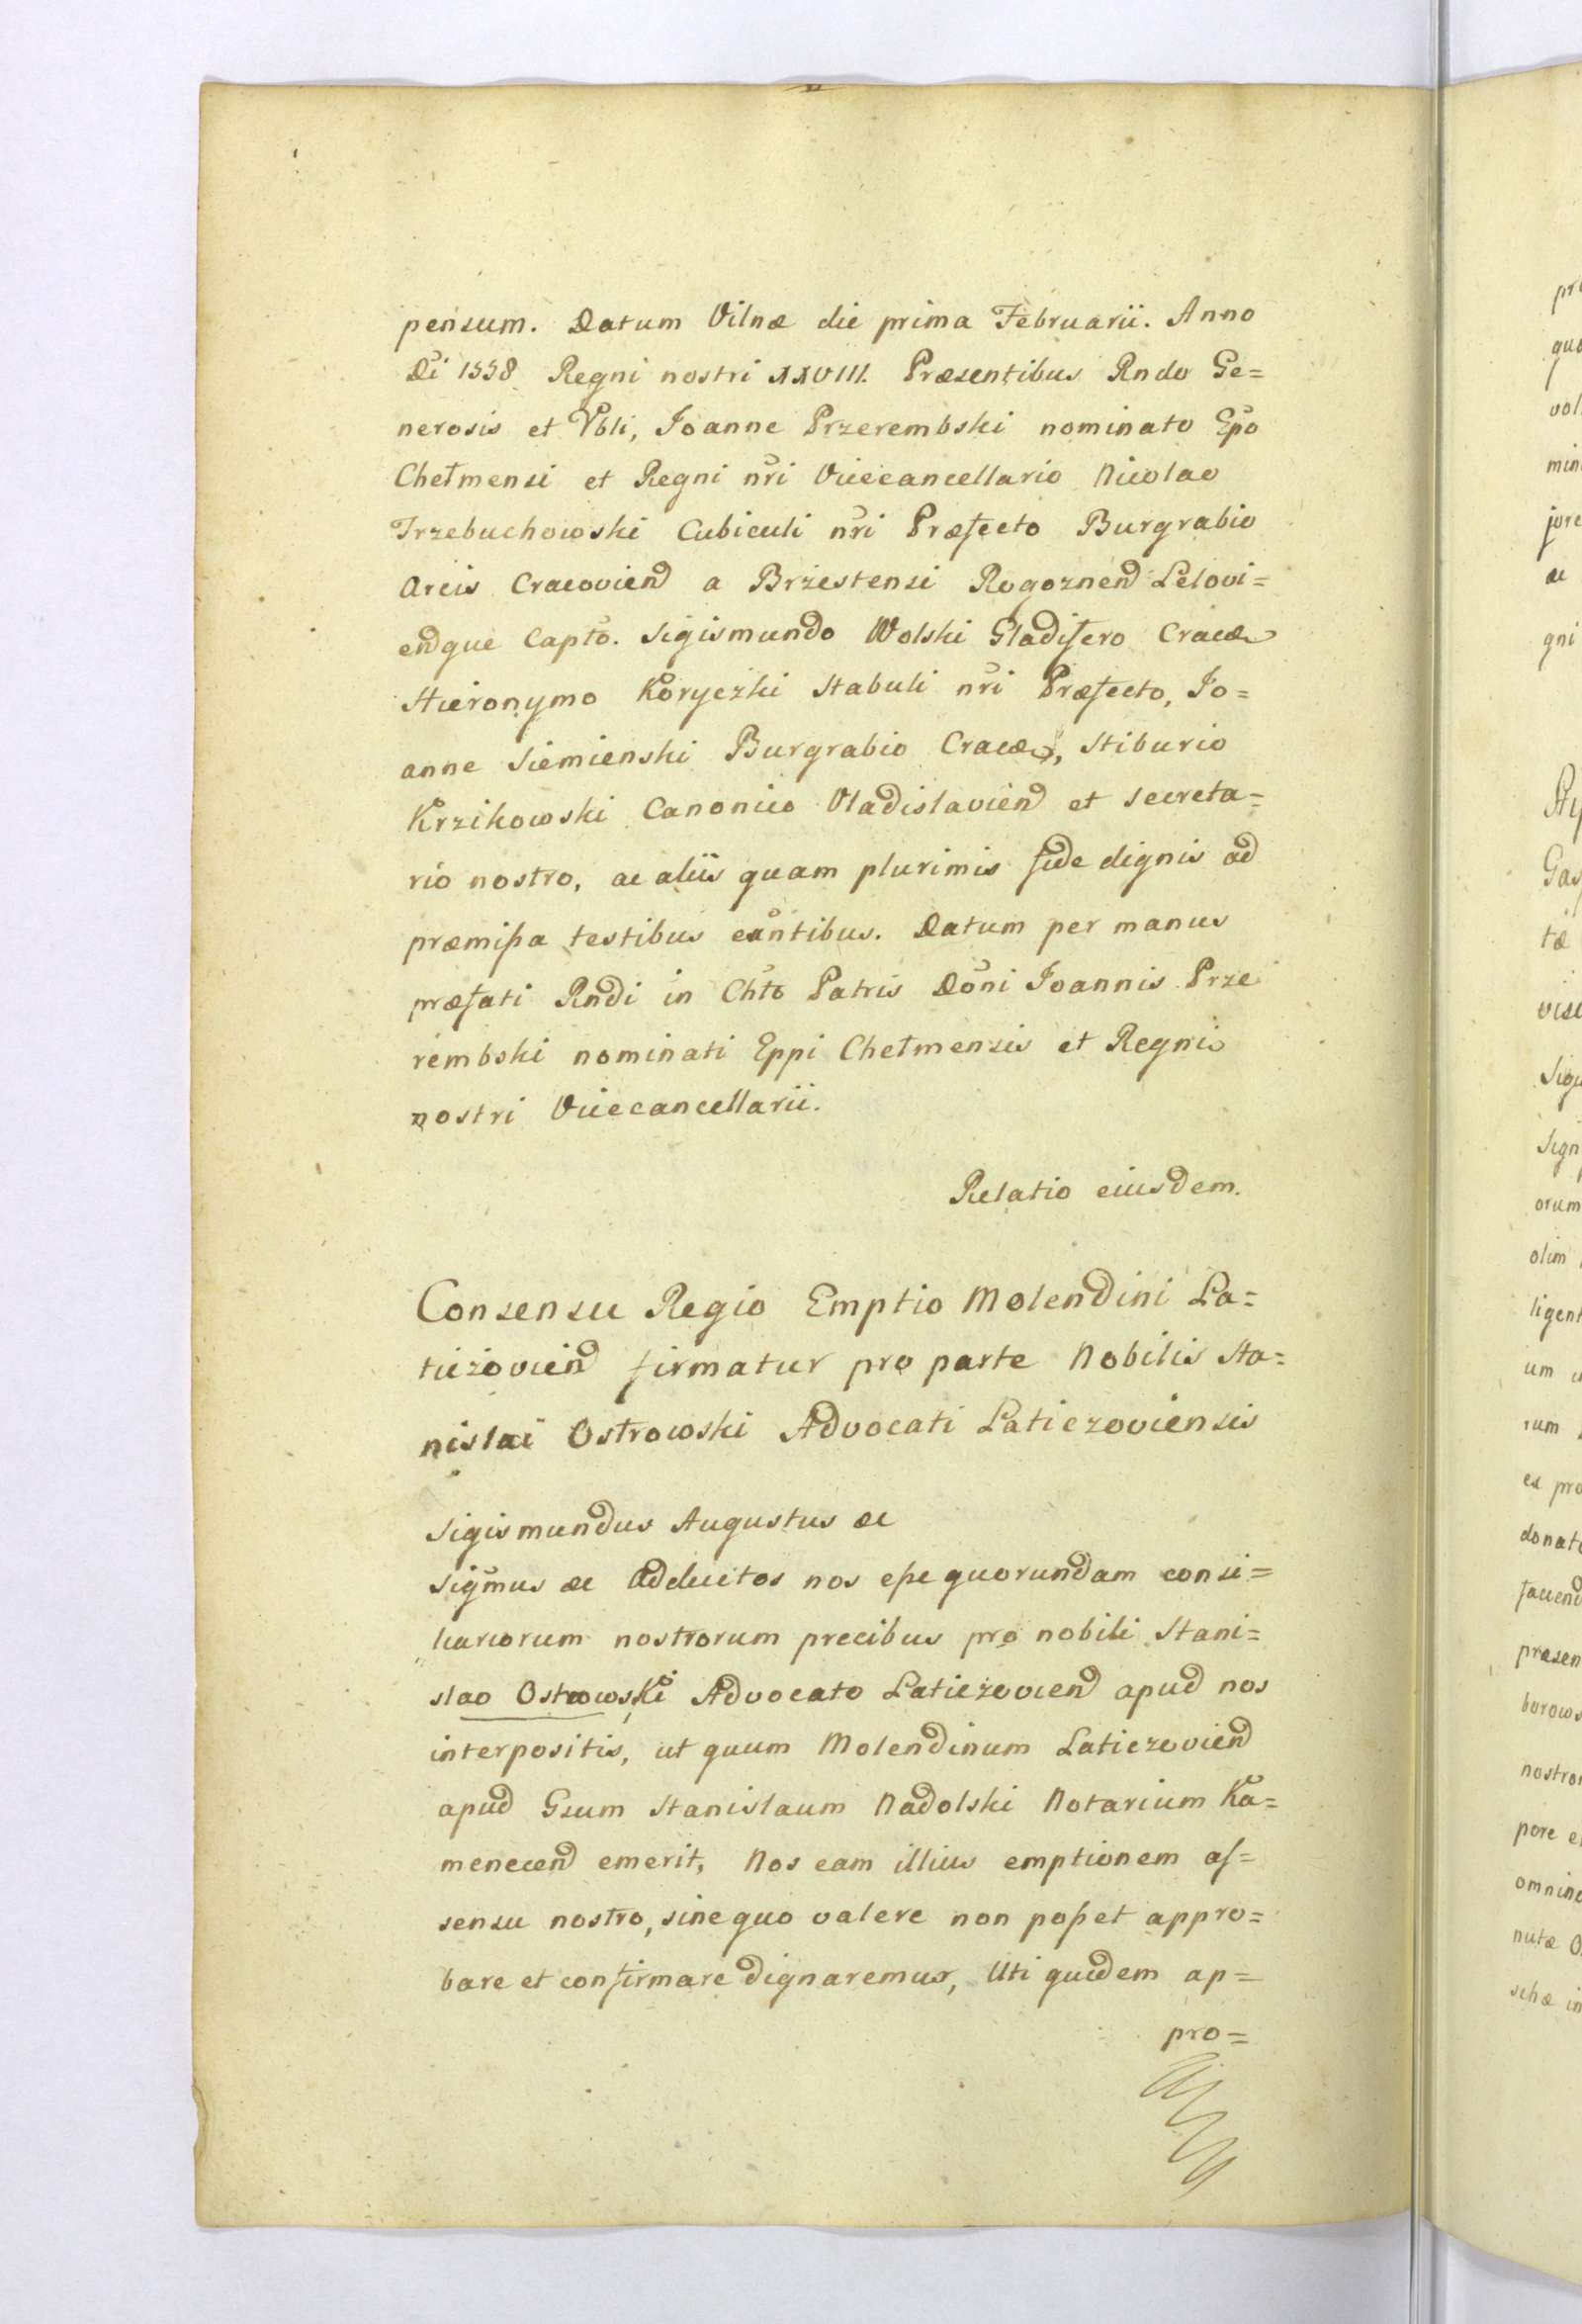 pensum. Datum Vilnæ die prima Februarii. Anno
Di 1558 Regni nostri XXVIII. Præsentibus Rndo Ge=
nerosis et Vbli, Joanne Przerembski nominato Epo
Chełmensi et Regni nri Vicecancellario Nicolao
Trzebuchowski Cubiculi nri Præfecto Burgrabio
Arcis Cracoviend a Brzestensi Rogoznend Lelovi=
endque Capto. Sigismundo Wolski Gladifero Cracœ
Hieronymo Koryczki Stabuli nri Præfecto, Jo=
anne Siemienski Burgrabio Cracœ, Stiburio
Krzikowski Canonico Vladislaviend et Secreta=
rio nostro, ac aliis quam plurimis fide dignis ad
præmißa testibus exntibus. Datum per manus
præfati Rndi in Chto Patris Doni Joannis Prze
rembski nominati Eppi Chełmensis et Regni
nostri Vicecancellarii.
Relatio eiusdem.
Consensu Regio Emptio Molendini La=
tiezoviend firmatur pro parte Nobilis Sta=
nislai Ostrowski Advocati Latiezoviensis
Sigismundus Augustus æc
Sigmus æc Adductos nos eße quorundam consi=
liariorum nostrorum precibus pro nobili Stani=
slao Ostrowski Advocato Latiezoviend apud nos
interpositis, ut quum Molendinum Latiezoviend
apud Gsum Stanislaum Nadolski Notarium Ka=
menecend emerit, Nos eam illius emptionem as=
sensu nostro, sine quo valere non poßet appro=
bare et confirmare dignaremur, Uti quidem ap=
pro=